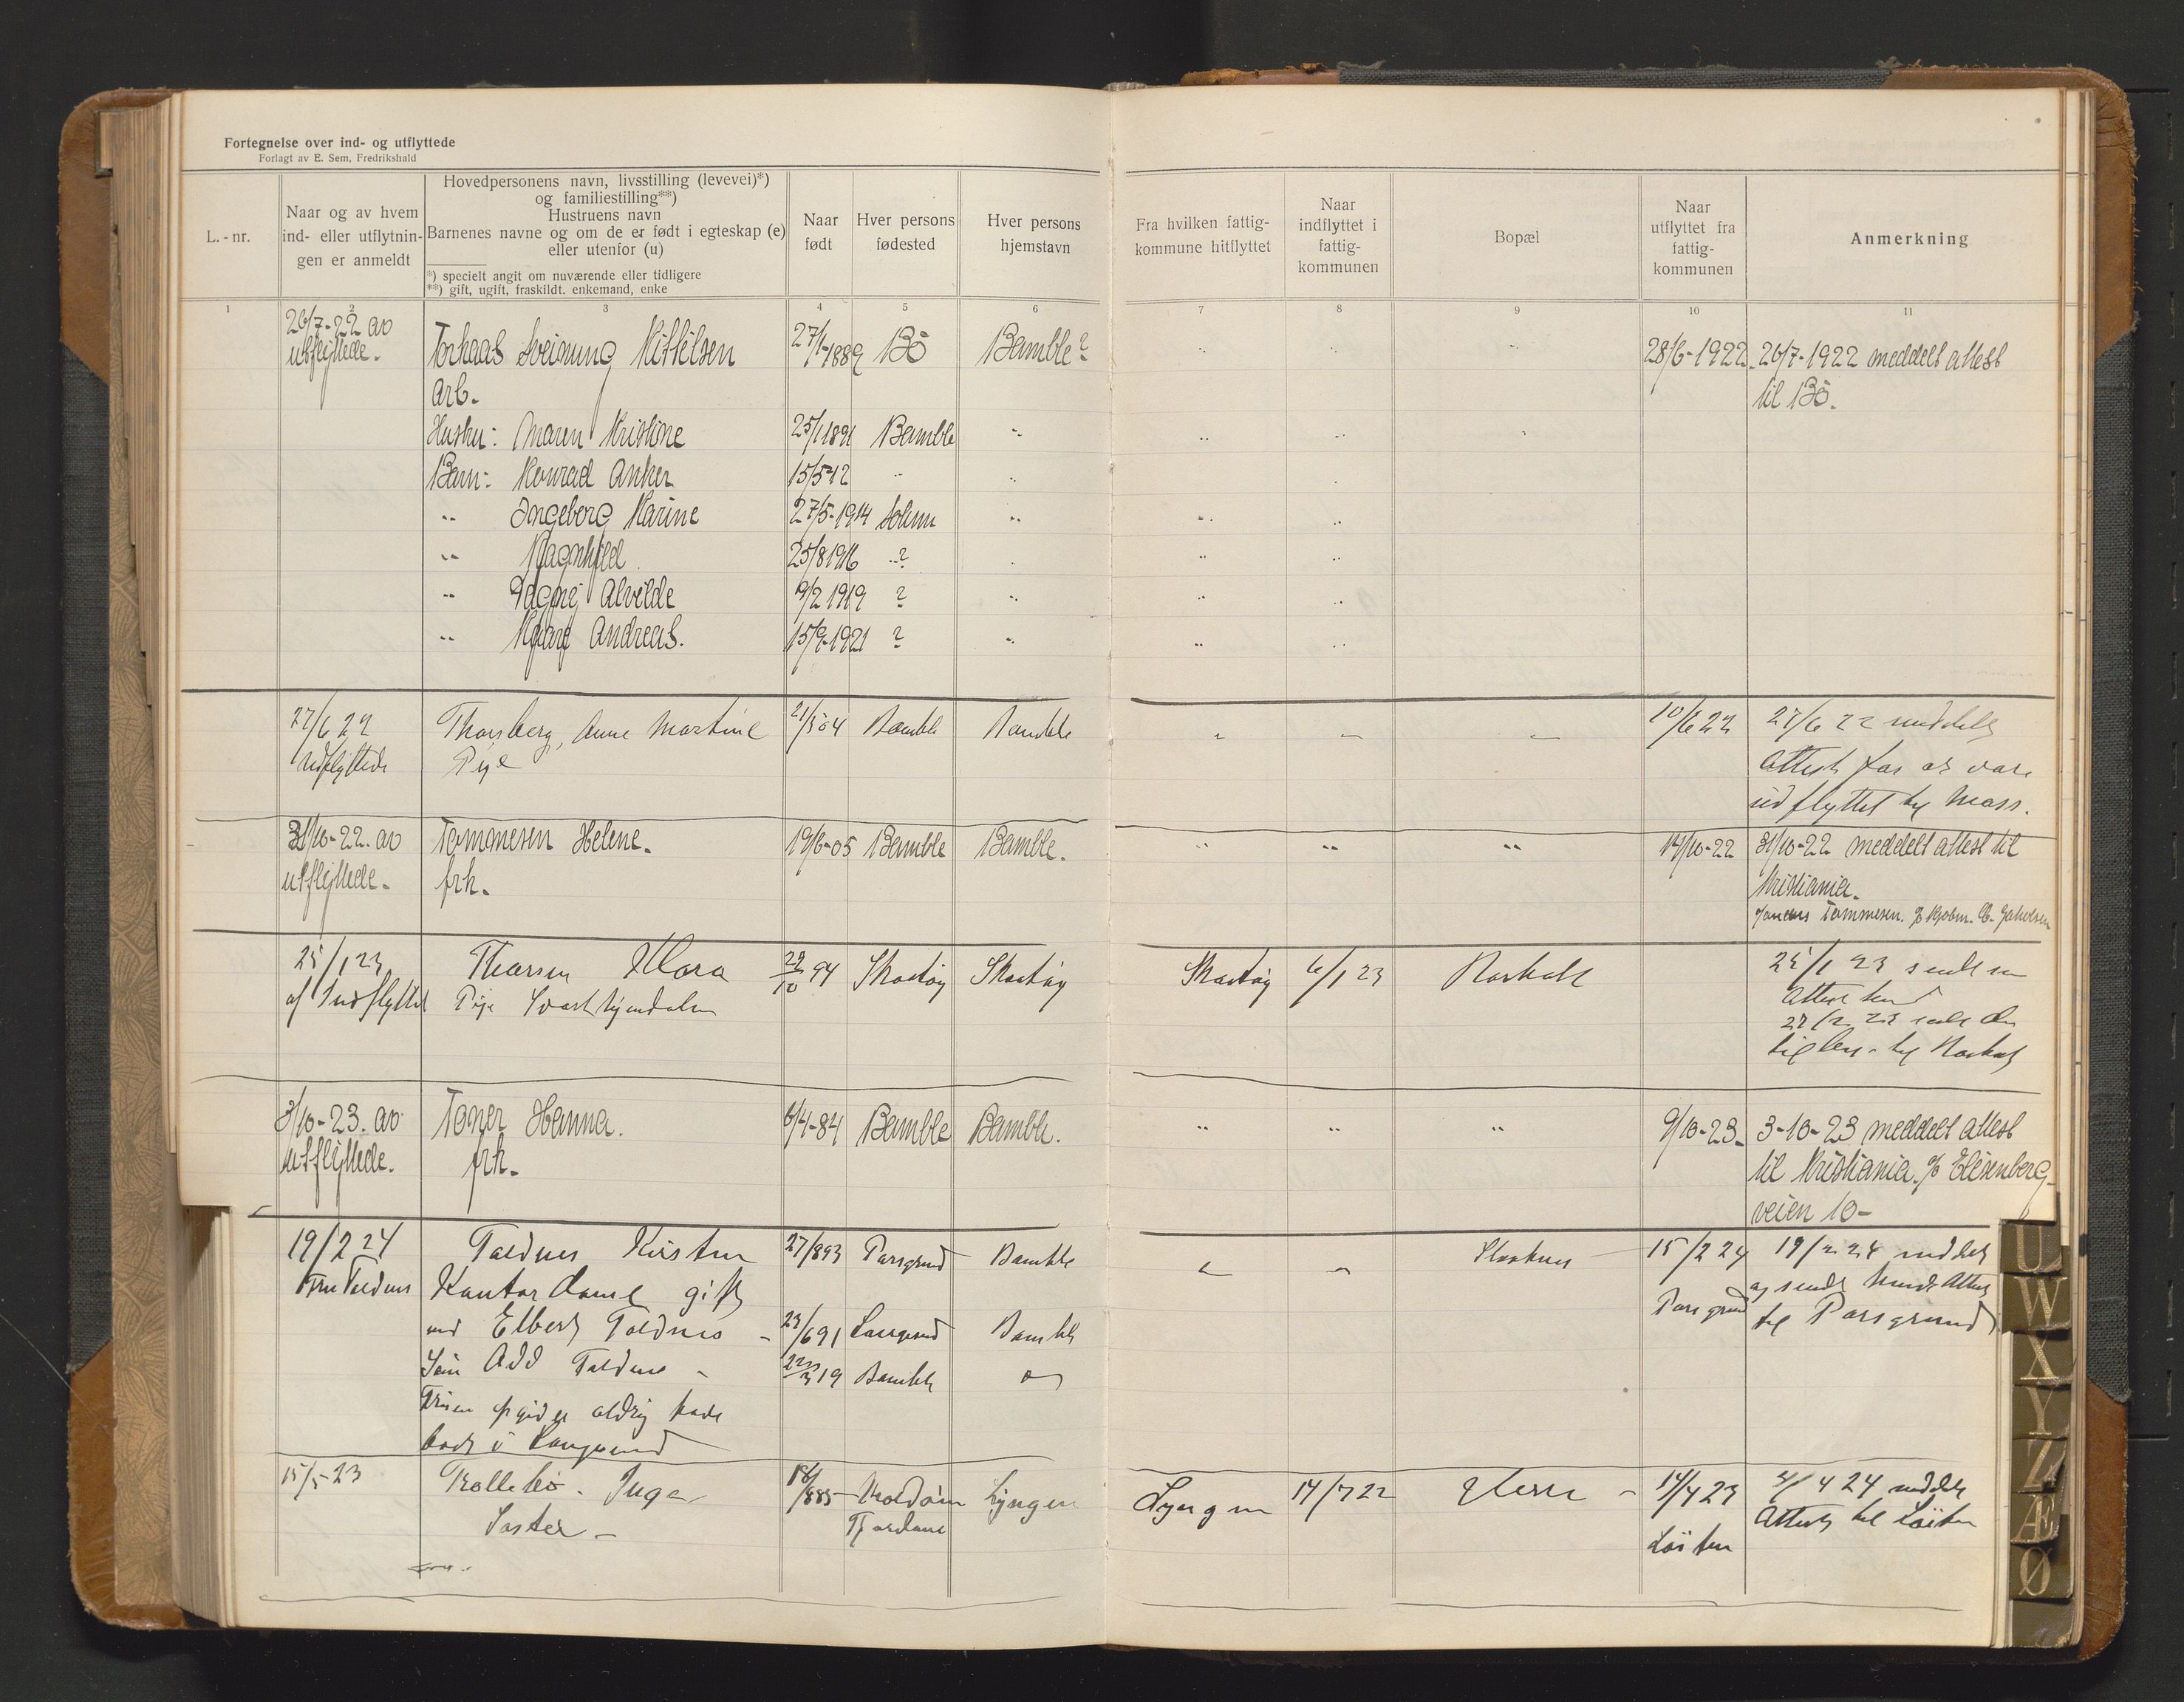 Fortegnelse over ind- og utflyttede
Forlagt av E. Sem, Fredrikshald
L.-nr.
Naar og av hvem
ind- eller utflytnin-
gen er anmeldt
Hovedpersonens navn, livsstilling (levevei)*)
og familiestilling**)
Hustruens navn
Barnenes navne og om de er født i egteskap (e)
eller utenfor (u)
*) specielt angit om nuværende eller tidligere
**) gift, ugift, fraskildt. enkemand, enke
Naar
født
Hver persons
fødested
Hver persons
hjemstavn
Fra hvilken fattig-
kommune hitflyttet
Naar
indflyttet i
fattig-
kommunen
Bopæl
Naar
utflyttet fra
fattig-
kommunen
Anmerkning
1 2 3 4 5 6 7 8 9 10 11
26/7-22 av Torkaas Sveinung Kittilsen 27/1-1889 Bö Bamble? 28/6-1922. 26/7-1922 meddelt attest
utflyttede. Arb. til Bö.
Hustru: Maren Kristine 25/1 1891 Bamble
Barn: Konrad Anker 15/5-12
" Ingeborg Karine 27/5-1914 Solum
" Ragnhild 25/8 1916 ?
" Dagny Alvilde /2 1919 ?
" Kaare Andreas. 15/9-1921 ?
27/6 22 Thorsberg, Anne Martine 21/5 04 Bamble Bamble 10/6 22 27/6 22 meddelt
Udflyttede Pige Attest for at være
udflyttet til Moss.
31/10-22. av Tommesen Helene. 19/6-05 Bamble Bamble. 14/10-22 31/10-22 meddelt attest til
utflyttede. frk. Kristiania.
Tommesen. Kjøbm.
25/1 23 Thorsen Klara 22/10 94 Skaatöy Skaatöy Skaatöy 6/1 23 25/1 23
af Indflytted Pige Attest
3/10-23. av Toner Hanna. 6/4-84 Bamble Bamble. 9/10-23. 3-10-23 meddelt attest
utflyttede. frk. til Kristiania. % Elisenberg-
veien 10-
19/2 24 Taldnes Kirsten 27/893 Porsgrund Bamble 15/2 24 19/2 24 meddelt
Fru Taldnes Kontordame gift Porsgrund og sendt Attest
med Elbert Taldnes 23/6 91 Langesund Bamble til Porsgrund
Søn Odd Taldnes 19 Bamble
aldrig have
i Langesund
15/5-23 Trollebö. Inga 18/885 Lyngen Lyngen 14/7 22 Herre 14/4 23 4/4 24 meddelt
Søster Fjordane Löiten Attest til Löiten
U
W
X
Y
Z
Æ
Ø